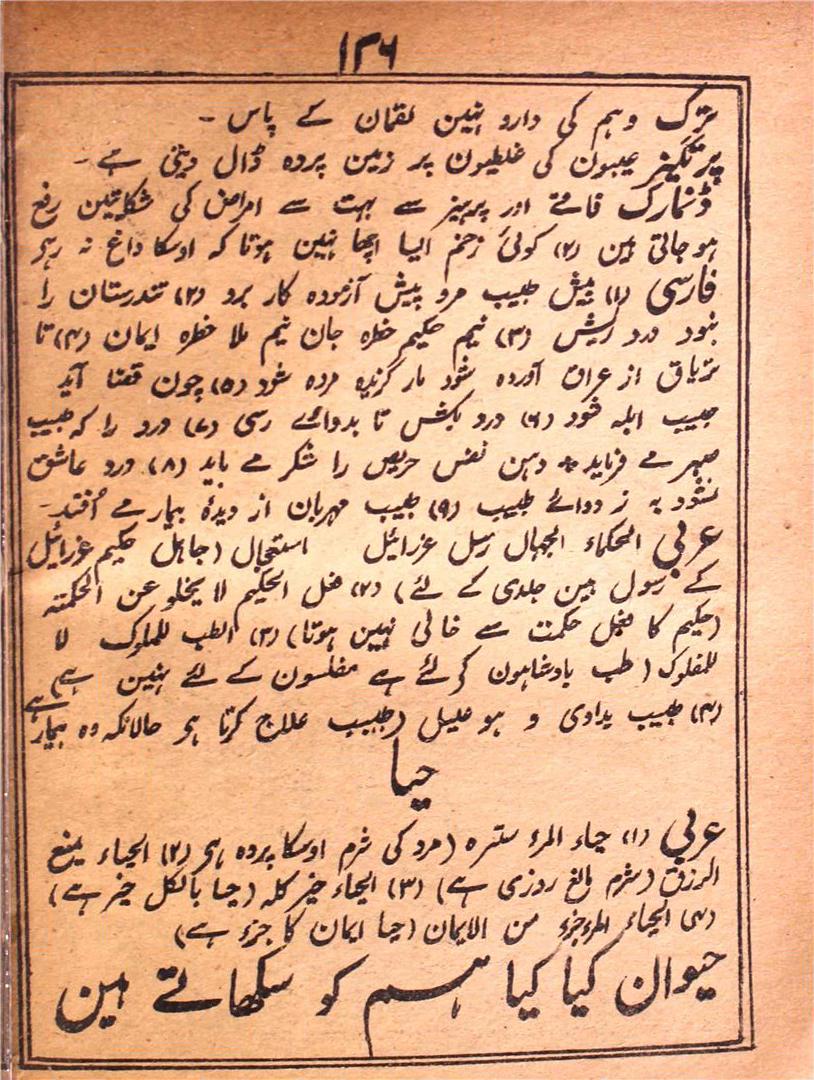 ۱۳۶
ترک وہم کی دارو نہین لقمان کے پاس ۔
پرتگیز عیبون کی غلطیون پر زمین پردہ ڈال دیتی ہے ۔
ڈنمارک فاقے اور پرہیز سے بہت سے امراض کی شکایتین رفع
ہو جاتی ہین (۲) کوئی زخم ایسا اچھا نہین ہوتا کہ اوسکا داغ نہ رہے
فارسی (۱) پیش طبیب مرو پیش آزمودہ کار برو (۲) تندرستان را
نبود درد ریش (۳) نیم حکیم خطرہ جان نیم ملا خطرہ ایمان (۴) تا
تریاق از عراق آوردہ شود مار گزیدہ مردہ شود (۵) چون قضا آید
طبیب ابلہ شود (۶) درد بکش تا بدوائے رسی (۷) درد را کہ طبیب
صبر مے فرماید * دہن نفس حریص را شکر مے باید (۸) درد عاشق
نشود بہ ز دوائے طبیب (۹) طبیب مہربان از دیدۂ بیمار مے اُفتد ۔
عربی الحکماء الجہال رسل عزرائیل استعجال (جاہل حکیم عزرائیل
کے رسول ہین جلدی کے لئے) (۲) فعل الحکیم لا یخلو عن الحکمتہ
(حکیم کا فعل حکمت سے خالی نہین ہوتا) (۳) الطب للملوک لا
للمفلوک (طب بادشاہون کے لئے ہے مفلسون کے لئے نہین ہے
(۴) طبیب یداوی و ہو علیل (طبیب علاج کرتا ہے حالانکہ وہ بیمار ہے
حیا
عربی (۱) حیاء المرء سترہ (مرد کی شرم اوسکا پردہ ہے (۲) الحیاء یمنع
الرزق (شرم مانع روزی ہے) (۳) الحیاء خیر کلہ (حیا بالکل خیر ہے)
(۴) الحیاء المرء جزء من الایمان (حیا ایمان کا جزء ہے)
حیوان کیا کیا ہم کو سکھاتے ہین